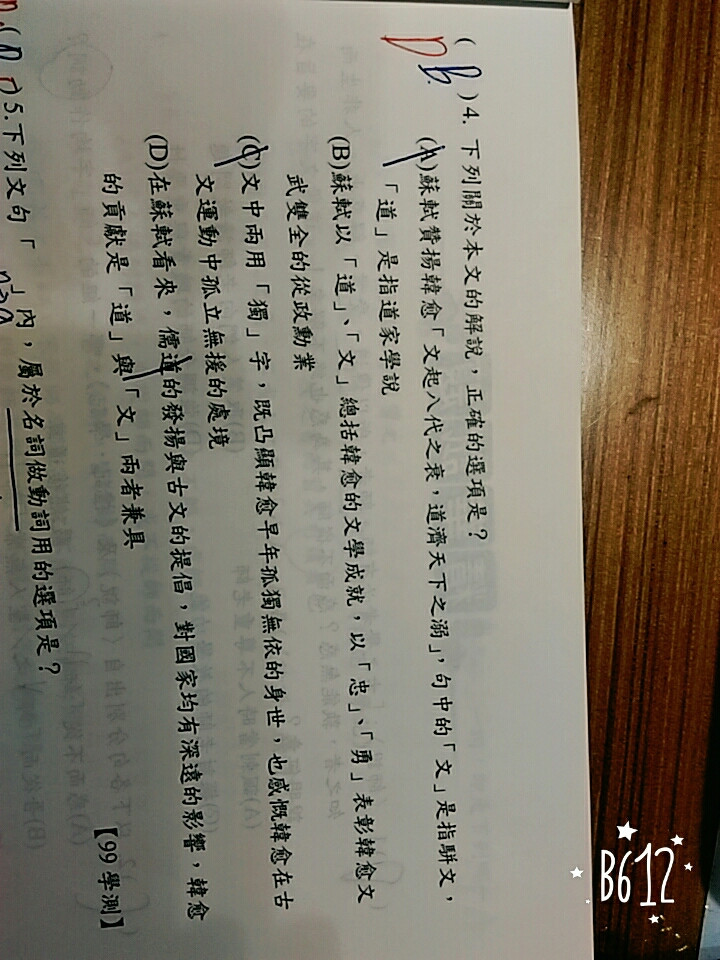 ( D b )4. 下列關於本文的解說，正確的選項是？
(A)蘇軾贊揚韓愈「文起八代之衰，道濟天下之溺」，句中的「文」是指駢文，
「道」是指道家學說
(B)蘇軾以「道」、「文」總括韓愈的文學成就，以「忠」、「勇」表彰韓愈文
武雙全的從政勳業
(C)文中兩用「獨」字，既凸顯韓愈早年孤獨無依的身世，也感慨韓愈在古
文運動中孤立無援的處境
(D)在蘇軾看來，儒道的發揚與古文的提倡，對國家均有深遠的影響，韓愈
的貢獻是「道」與「文」兩者兼具
【99 學測】
5.下列文句「 」內，屬於名詞做動詞用的選項是？
B612